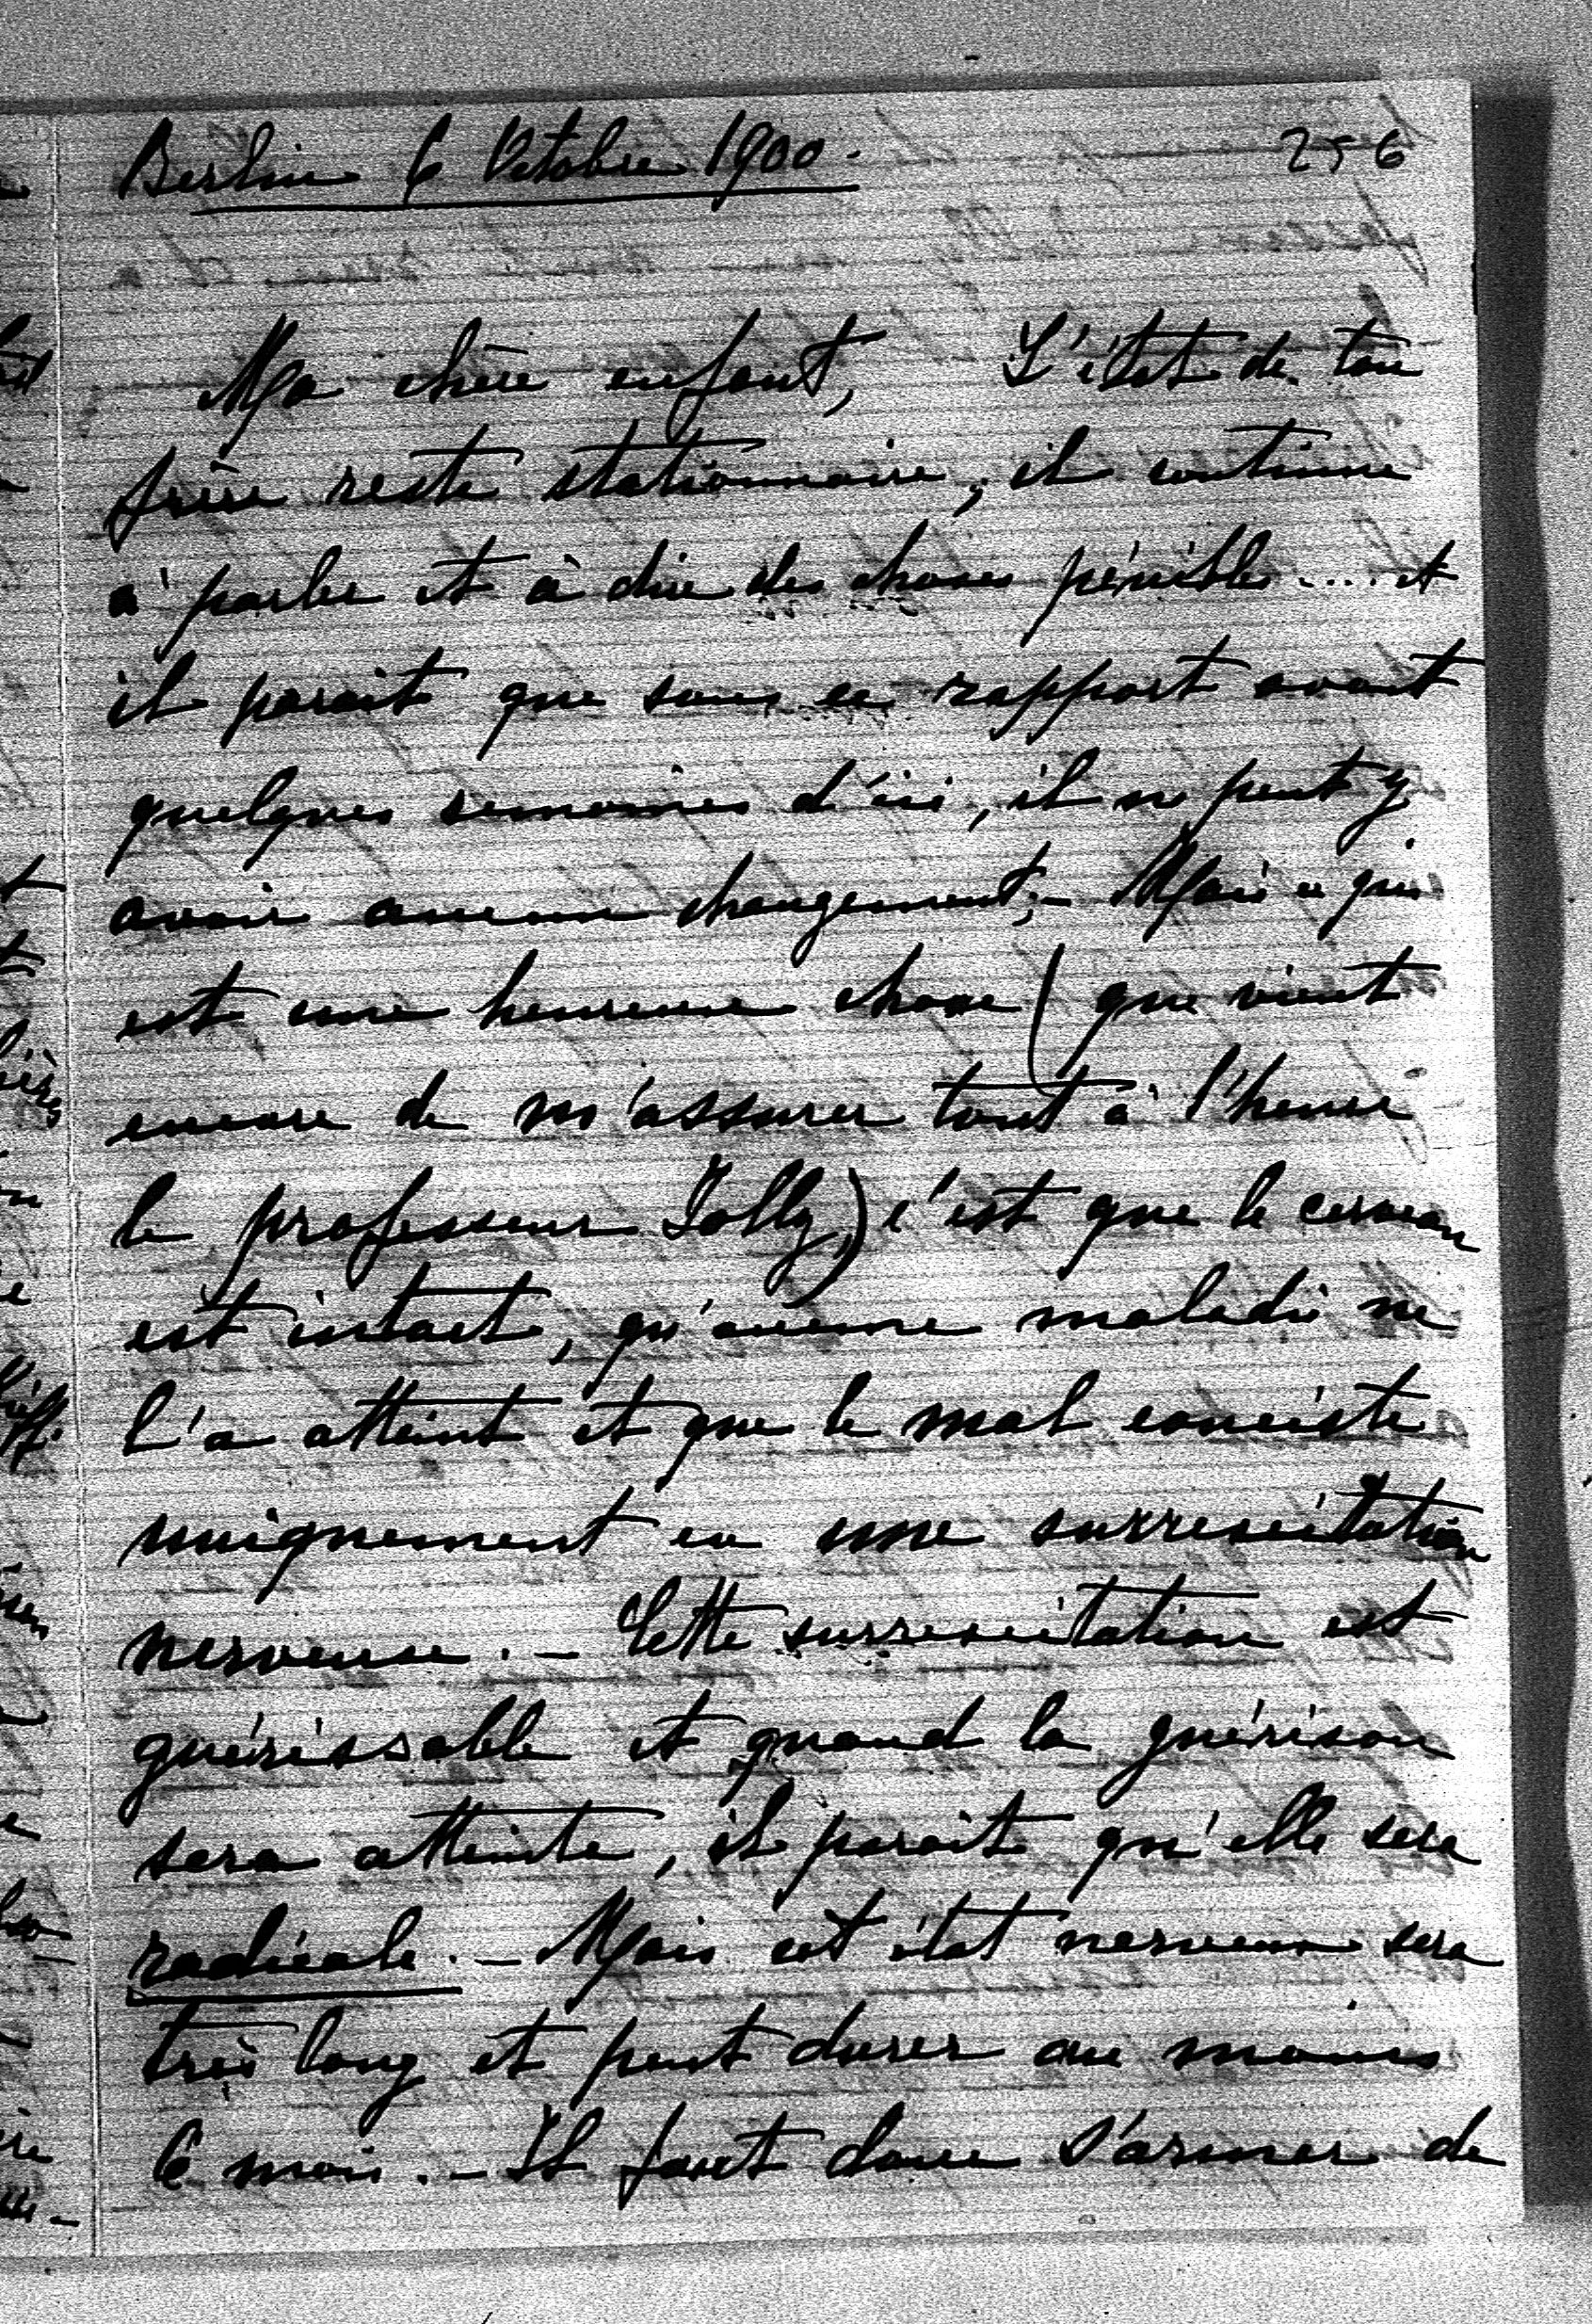 Berlin 6 Octobre 1900.
256
Ma chère enfant, L'état de ton
frère reste stationnaire, il continue
à parler et à dire des choses pénibles.... et
il parait que sous ce rapport avant
quelques semaines d'ici, il ne peut y
avoir aucun changement; - Mais ce qui
est une heureuse chose (que vient
encore de m'assurer tout à l'heure
le professeur Jolly,) c'est que le cerveau
est intact, qu'aucune maladie ne
l'a atteint et que le mal consiste
uniquement en une surrexcitation
nerveuse. - Cette surrexcitation est
guérissable et quand la guérison
sera atteinte, il parait qu'elle sera
radicale. - Mais cet état nerveux sera
très long et peut durer au moins
6 mois. - Il faut donc s'armer de